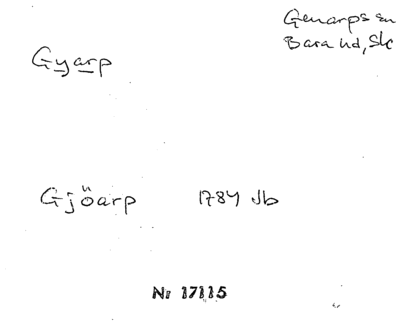 Genarps sn
Bara hd, Sk
Gyarp
Gjöarp 1784 Jb
Nr 17115